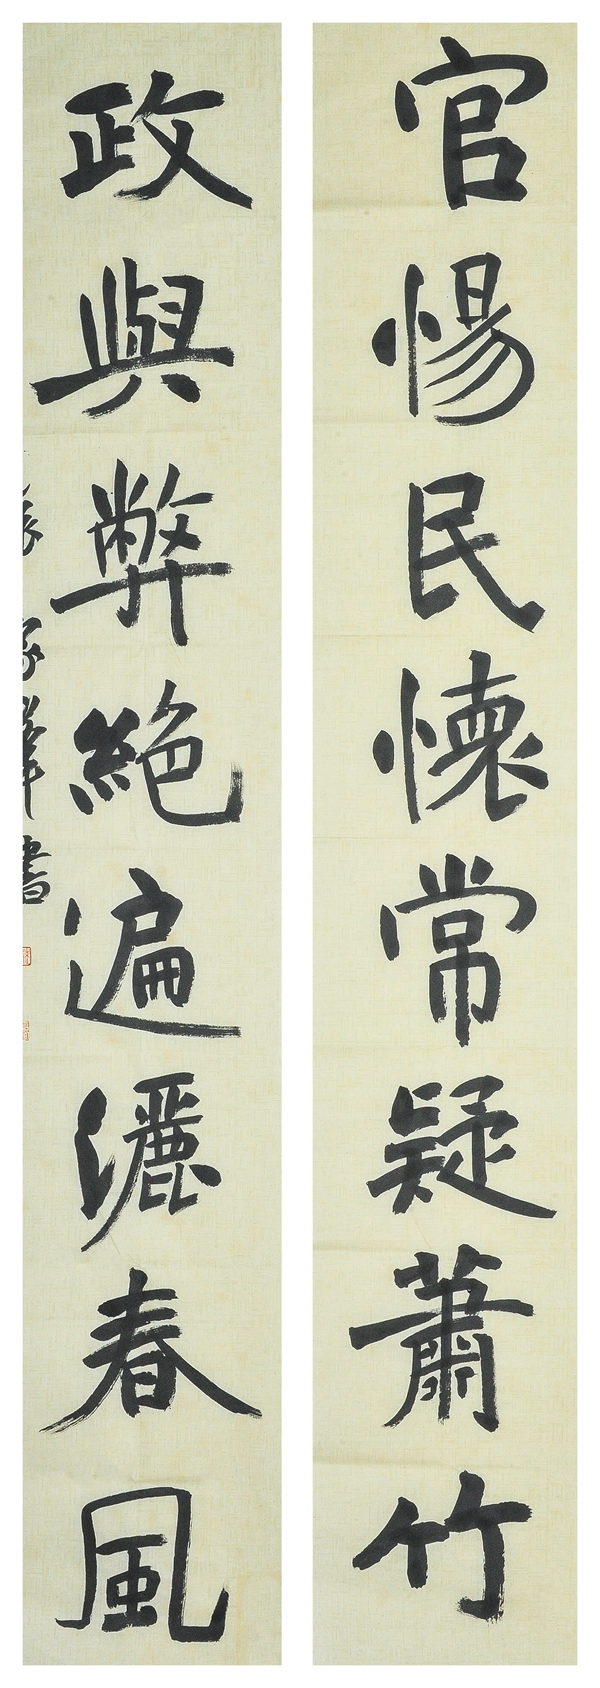 官惕民懷常疑蕭竹
政與弊絕遍灑春風